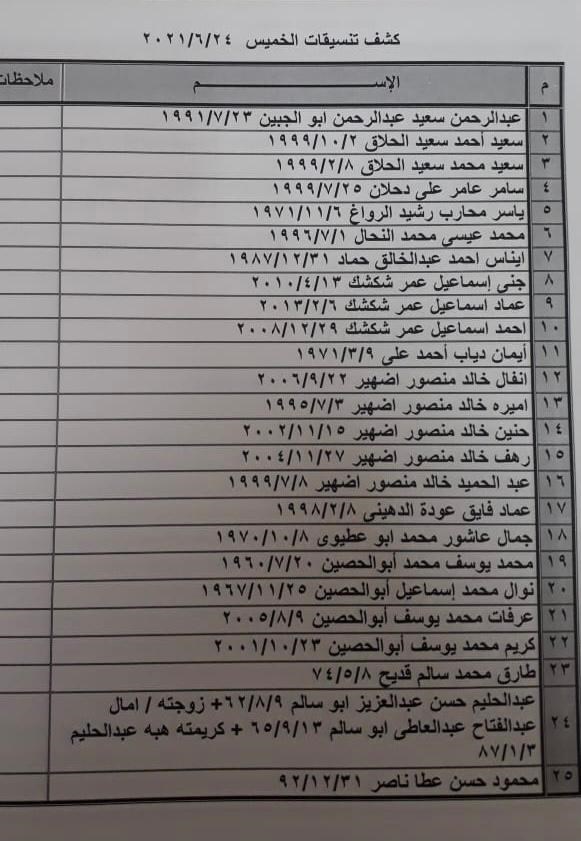 كشف تنسيقات الخميس ٢٠٢١/٦/٢٤
م الإســـــــــم ملاحظات
١ عبدالرحمن سعيد عبدالرحمن ابو الجبين ١٩٩١/٧/٢٣
٢ سعيد أحمد سعيد الحلاق ١٩٩٩/١٠/٢
٣ سعيد محمد سعيد الحلاق ١٩٩٩/٢/٨
٤ سامر عامر على دحلان ١٩٩٩/٧/٢٥
٥ ياسر محارب رشيد الرواغ ١٩٧١/١١/٦
٦ محمد عيسى محمد النحال ١٩٩٦/٧/١
٧ ايناس احمد عبدالخالق حماد ١٩٨٧/١٢/٣١
٨ جنى إسماعيل عمر شكشك ٢٠١٠/٤/١٣
٩ عماد اسماعيل عمر شكشك ٢٠١٣/٢/٦
١٠ احمد اسماعيل عمر شكشك ٢٠٠٨/١٢/٢٩
١١ أيمان دياب أحمد على ١٩٧١/٣/٩
١٢ انفال خالد منصور اضهير ٢٠٠٦/٩/٢٢
١٣ اميره خالد منصور اضهير ١٩٩٥/٧/٣
١٤ حنين خالد منصور اضهير ٢٠٠٢/١١/١٥
١٥ رهف خالد منصور اضهير ٢٠٠٤/١١/٢٧
١٦ عبد الحميد خالد منصور اضهير ١٩٩٩/٧/٨
١٧ عماد فايق عودة الدهينى ١٩٩٨/٢/٨
١٨ جمال عاشور محمد ابو عطيوى ١٩٧٠/١٠/٨
١٩ محمد يوسف محمد أبوالحصين ١٩٦٠/٧/٢٠
٢٠ نوال محمد إسماعيل أبوالحصين ١٩٦٧/١١/٢٥
٢١ عرفات محمد يوسف أبوالحصين ٢٠٠٥/٨/٩
٢٢ كريم محمد يوسف أبوالحصين ٢٠٠١/١٠/٢٣
٢٣ طارق محمد سالم قديح ٧٤/٥/٨
٢٤ عبدالحليم حسن عبدالعزيز ابو سالم ٦٢/٨/٩+ زوجته / امال
عبدالفتاح عبدالعاطى ابو سالم ٦٥/٩/١٣ + كريمته هبه عبدالحليم
٨٧/١/٣
٢٥ محمود حسن عطا ناصر ٩٢/١٢/٣١